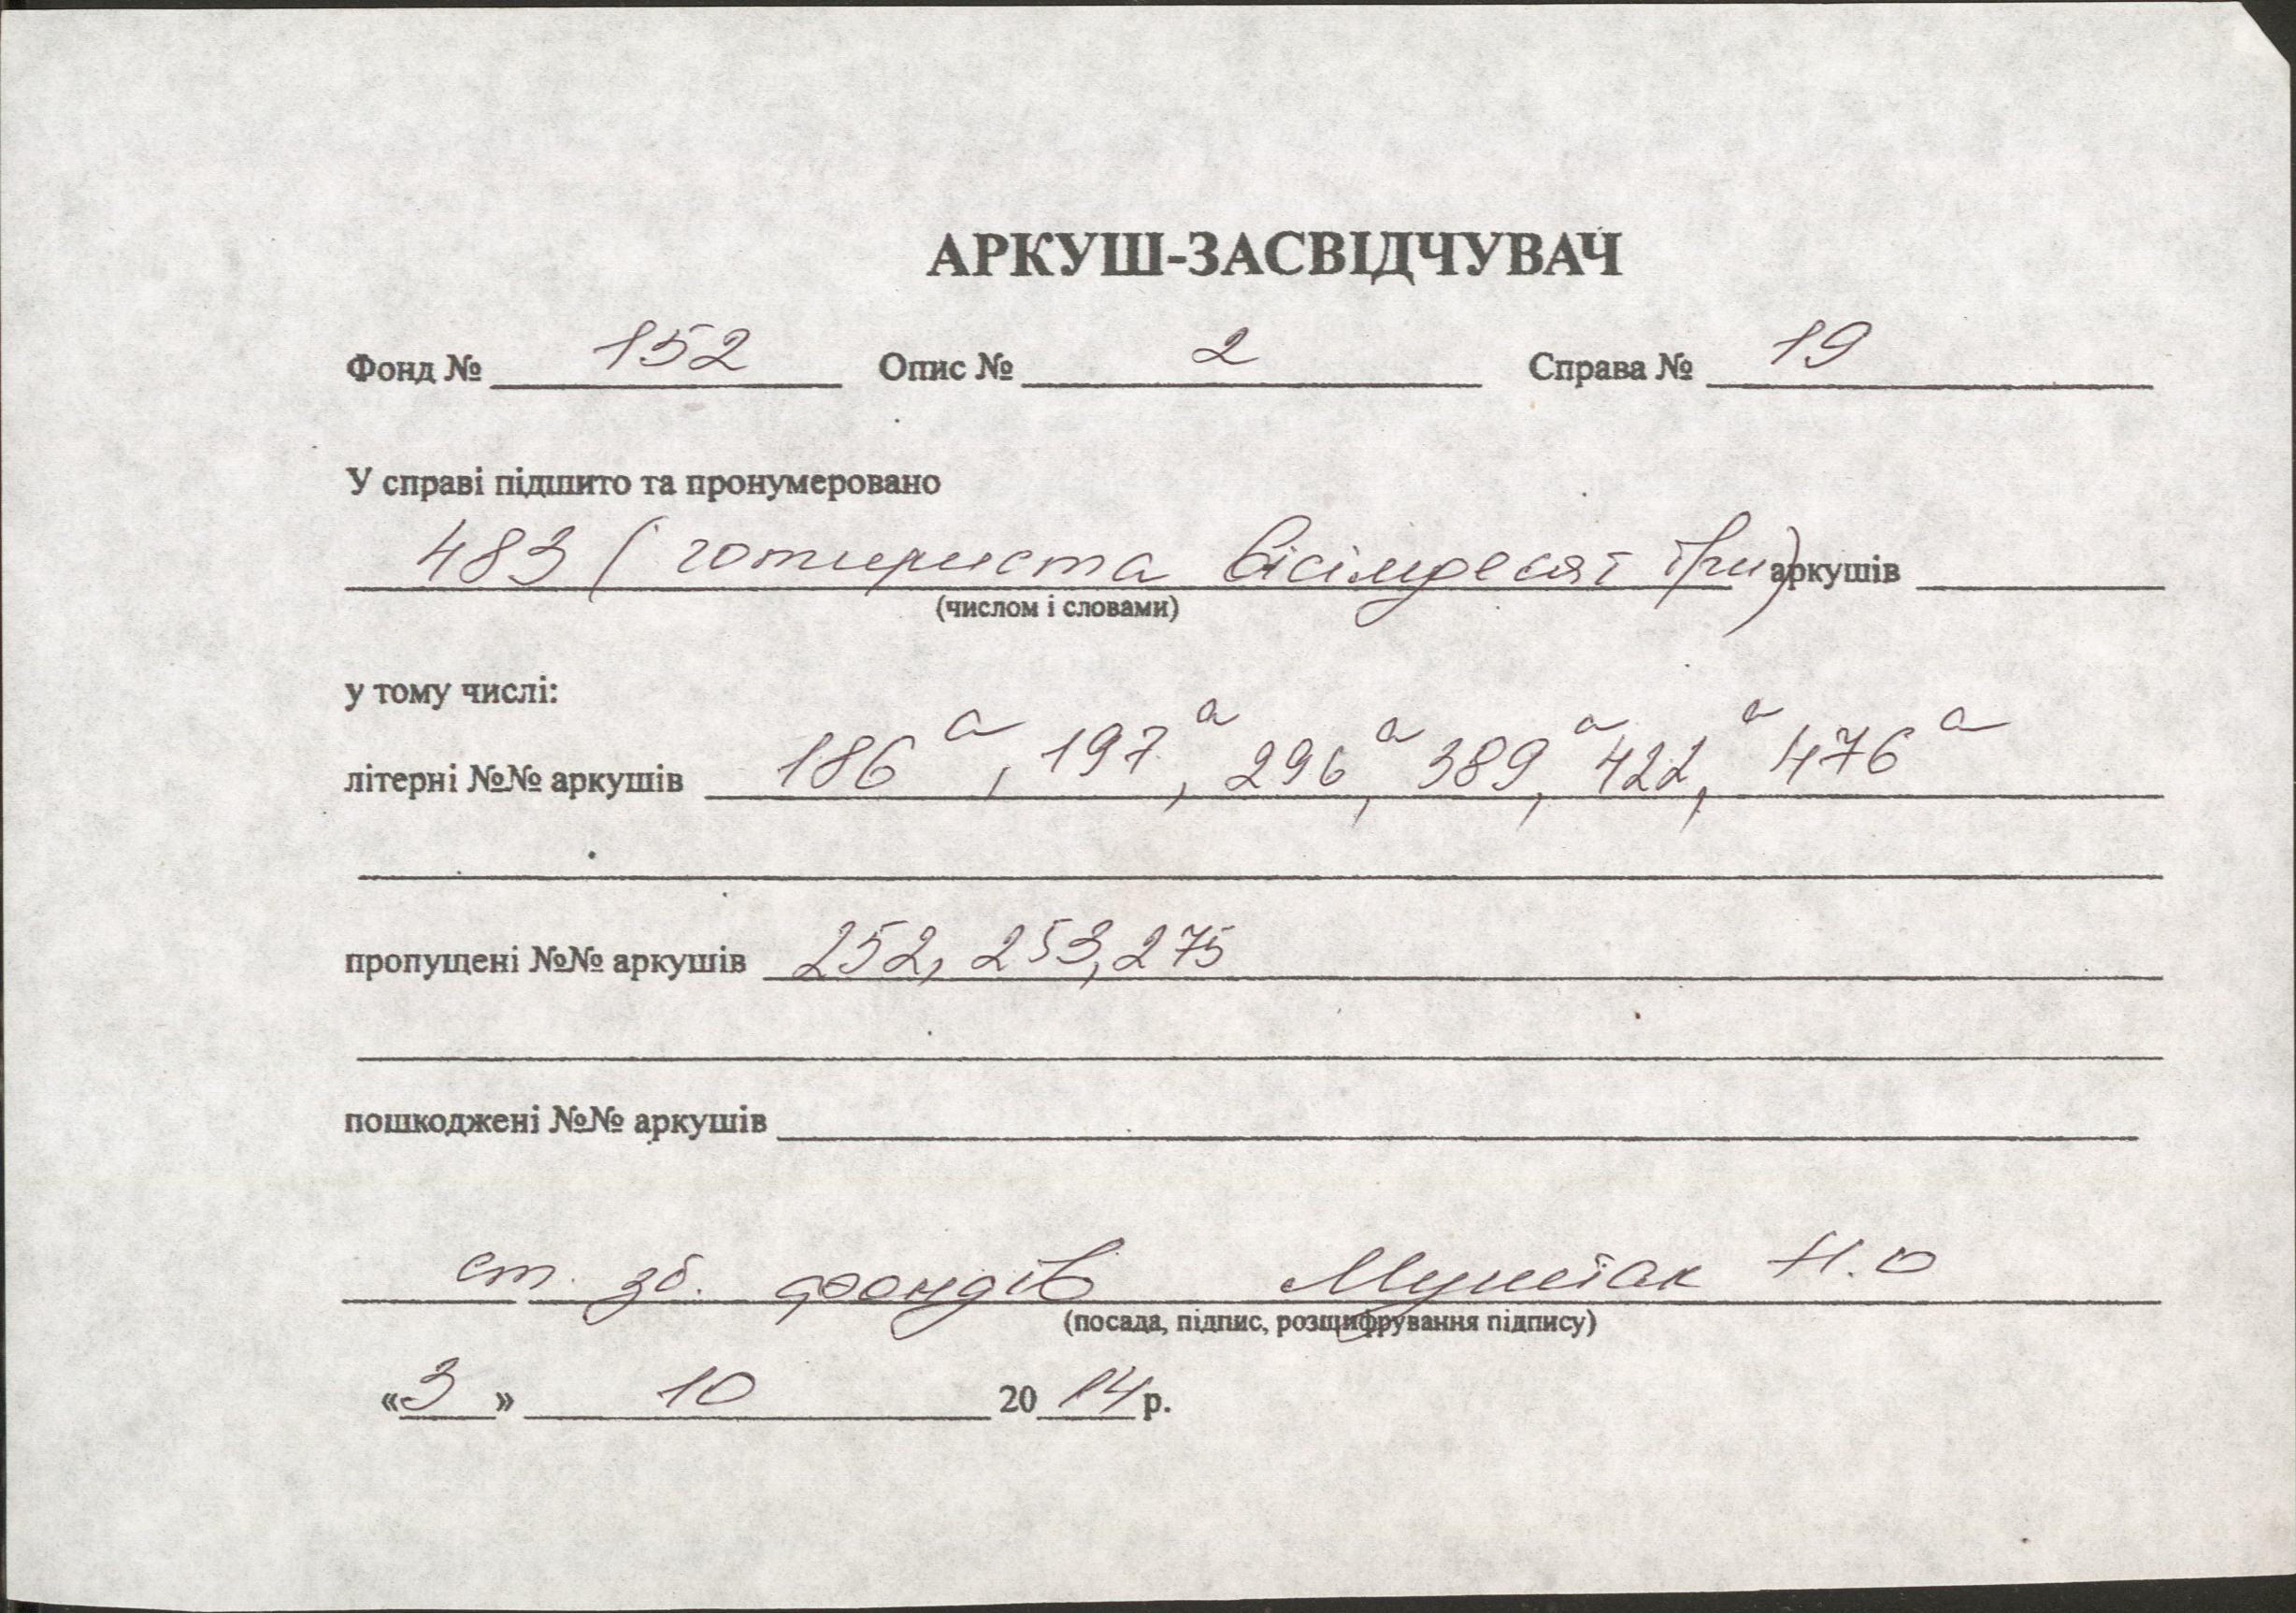 АРКУШ-ЗАСВІДЧУВАЧ
Фонд № 152 Опис № 2 Справа № 19
У справі підшито та пронумеровано
483 (чотириста вісімдесят три) аркушів
(числом і словами)
у тому числі:
літерні №№ аркушів 186а, 197а, 296а, 389а, 422а, 476а
пропущені №№ аркушів 252, 253, 275
пошкоджені №№ аркушів
ст. зб. фондів Н.О
(посада, підпис, розшифрування підпису)
«3» 10 2014 р.